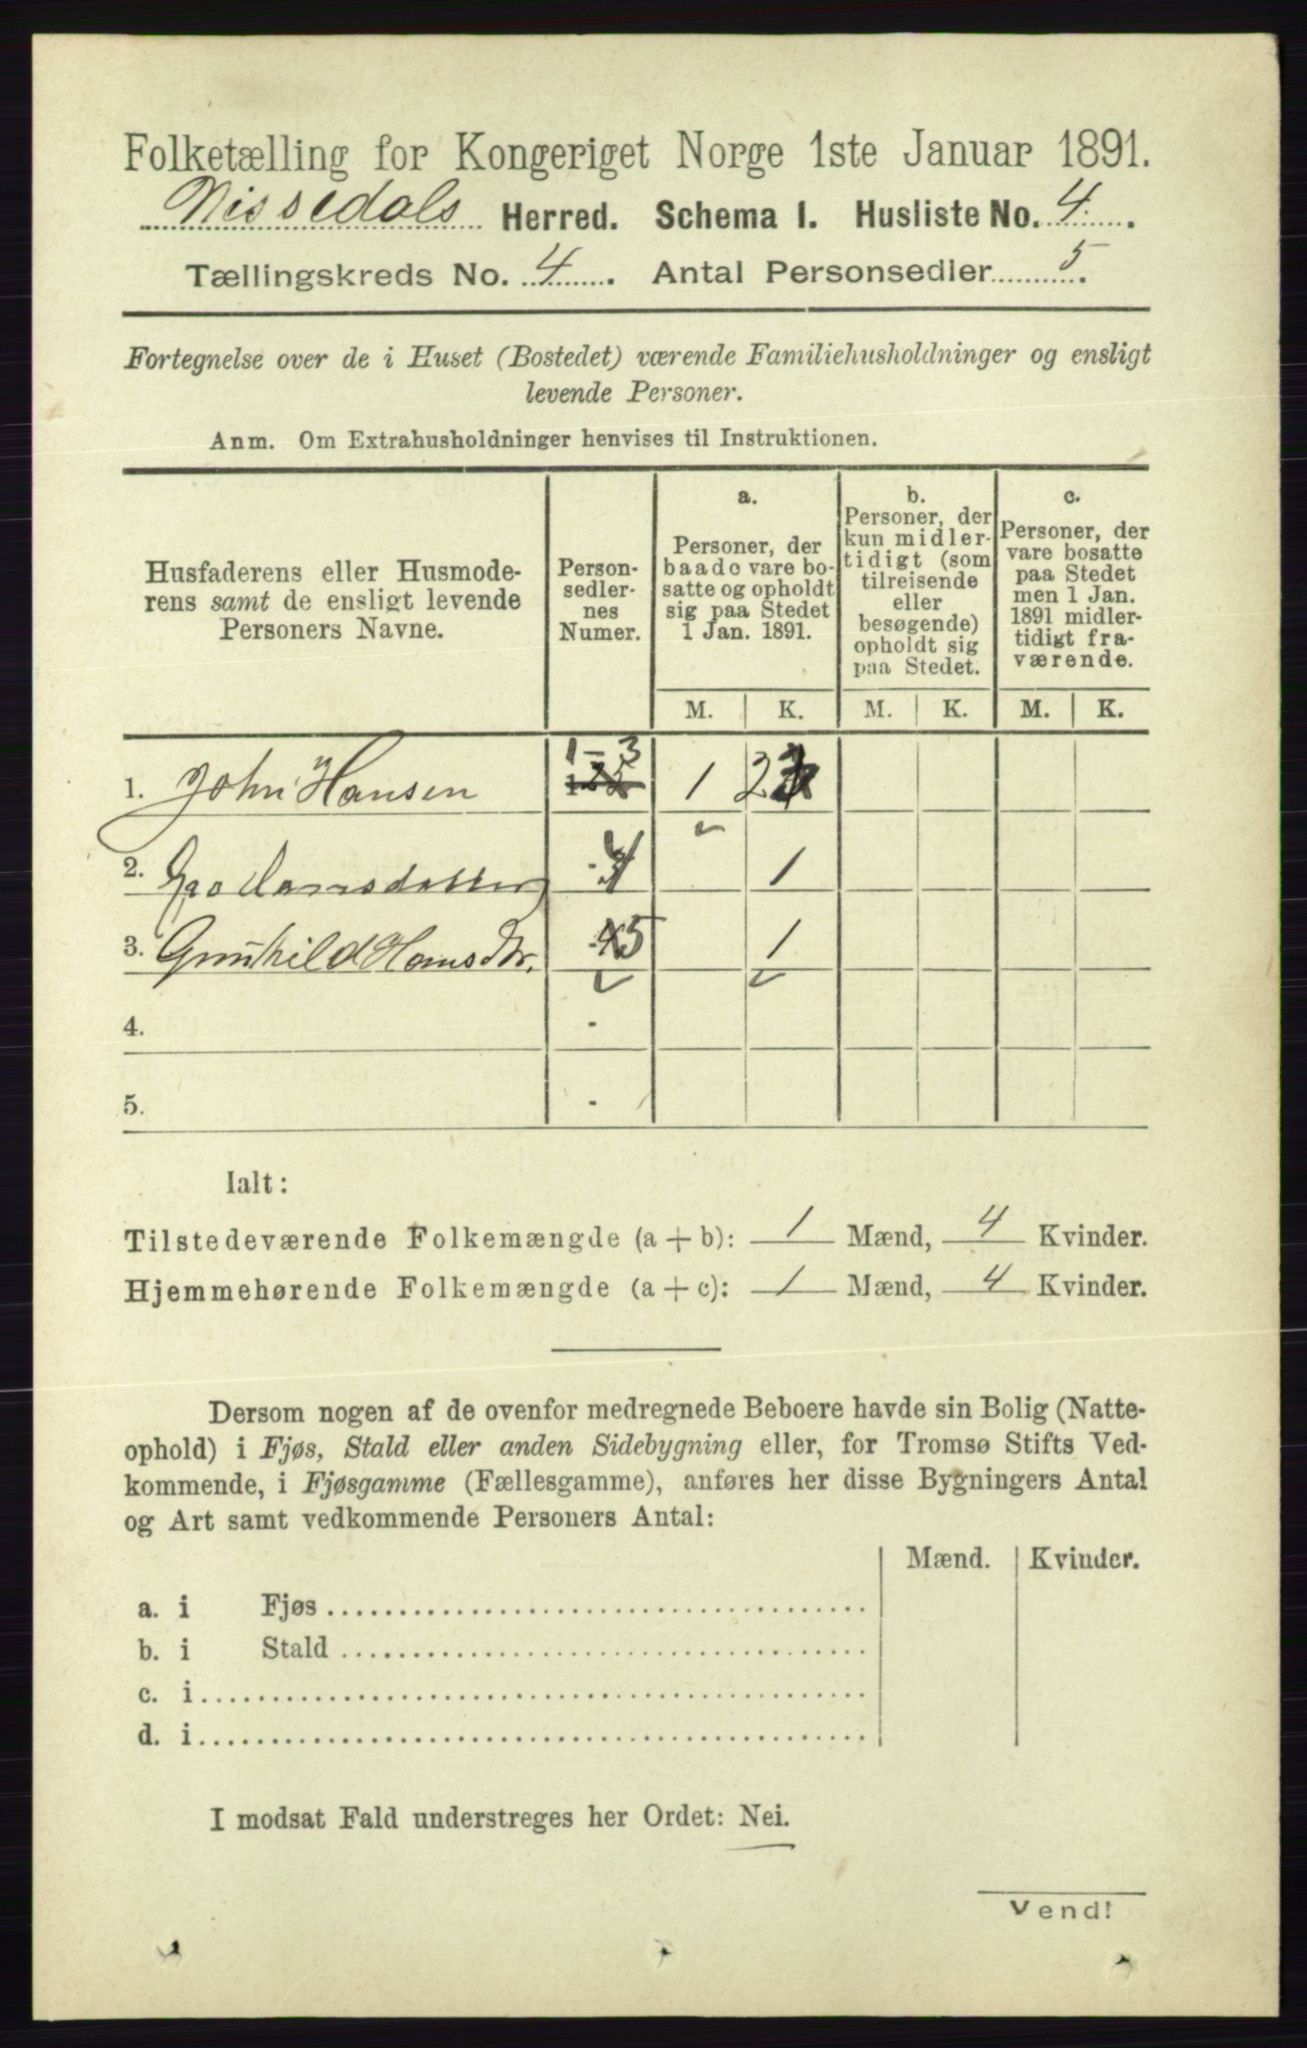 Folketælling for Kongeriget Norge 1ste Januar 1891.
Nissedals Herred. Schema I. Husliste No. 4.
Tællingskreds No. 4. Antal Personsedler 5.
Fortegnelse over de i Huset (Bostedet) værende Familiehusholdninger og ensligt
levende Personer.
Anm. Om Extrahusholdninger henvises til Instruktionen.
Husfaderens eller Husmode-
rens samt de ensligt levende
Personers Navne.
Person-
sedler-
nes
Numer.
a.
Personer, der
baade vare bo-
satte og opholdt
sig paa Stedet
1 Jan. 1891.
b.
Personer, der
kun midler-
tidigt (som
tilreisende
eller
besøgende)
opholdt sig
paa Stedet.
c.
Personer, der
vare bosatte
paa Stedet
men 1 Jan.
1891 midler-
tidigt fra-
værende.
M. K. M. K. M. K.
1. John Hansen 1-3 1 2
2. Gro 4 1
3. Gunhild Hansdtr. 5 1
4. -
5. -
Ialt:
Tilstedeværende Folkemængde (a + b): 1 Mænd, 4 Kvinder.
Hjemmehørende Folkemængde (a + c): 1 Mænd, 4 Kvinder.
Dersom nogen af de ovenfor medregnede Beboere havde sin Bolig (Natte-
ophold) i Fjøs, Stald eller anden Sidebygning eller, for Tromsø Stifts Ved-
kommende, i Fjøsgamme (Fællesgamme), anføres her disse Bygningers Antal
og Art samt vedkommende Personers Antal:
Mænd. Kvinder.
a. i Fjøs
b. i Stald
c. i
d. i
I modsat Fald understreges her Ordet: Nei.
Vend!